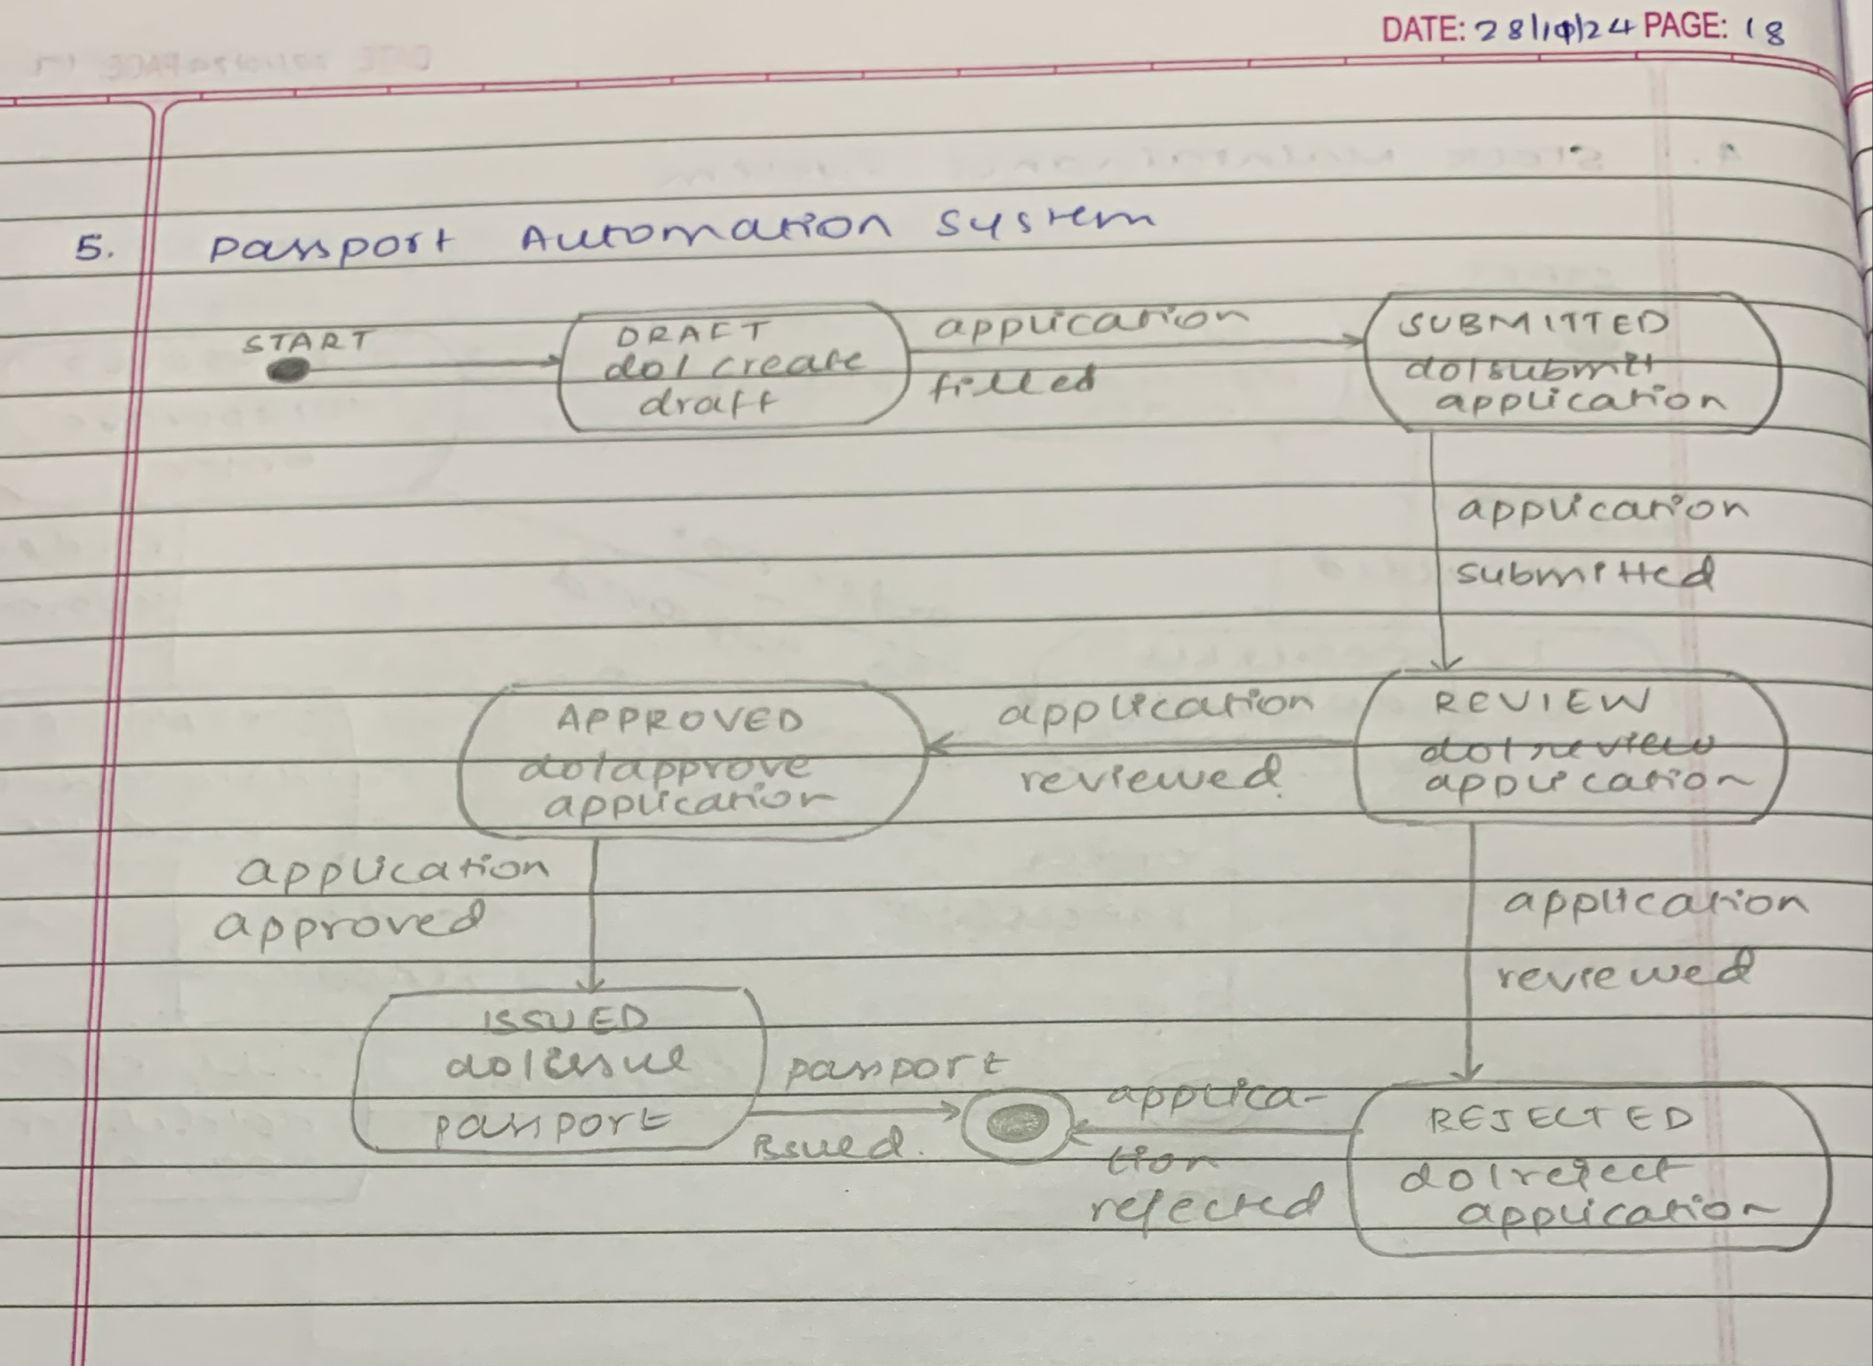 DATE: 28/10/24 PAGE: 18
5. Passport Automation System
START
DRAFT
do/create
draft
application
filled
SUBMITTED
do/submit
application
application
submitted
REVIEW
do/review
application
application
reviewed
APPROVED
do/approve
application
application
approved
application
reviewed
ISSUED
do/issue
passport
passport
issued.
applica-
tion
rejected
REJECTED
do/reject
application